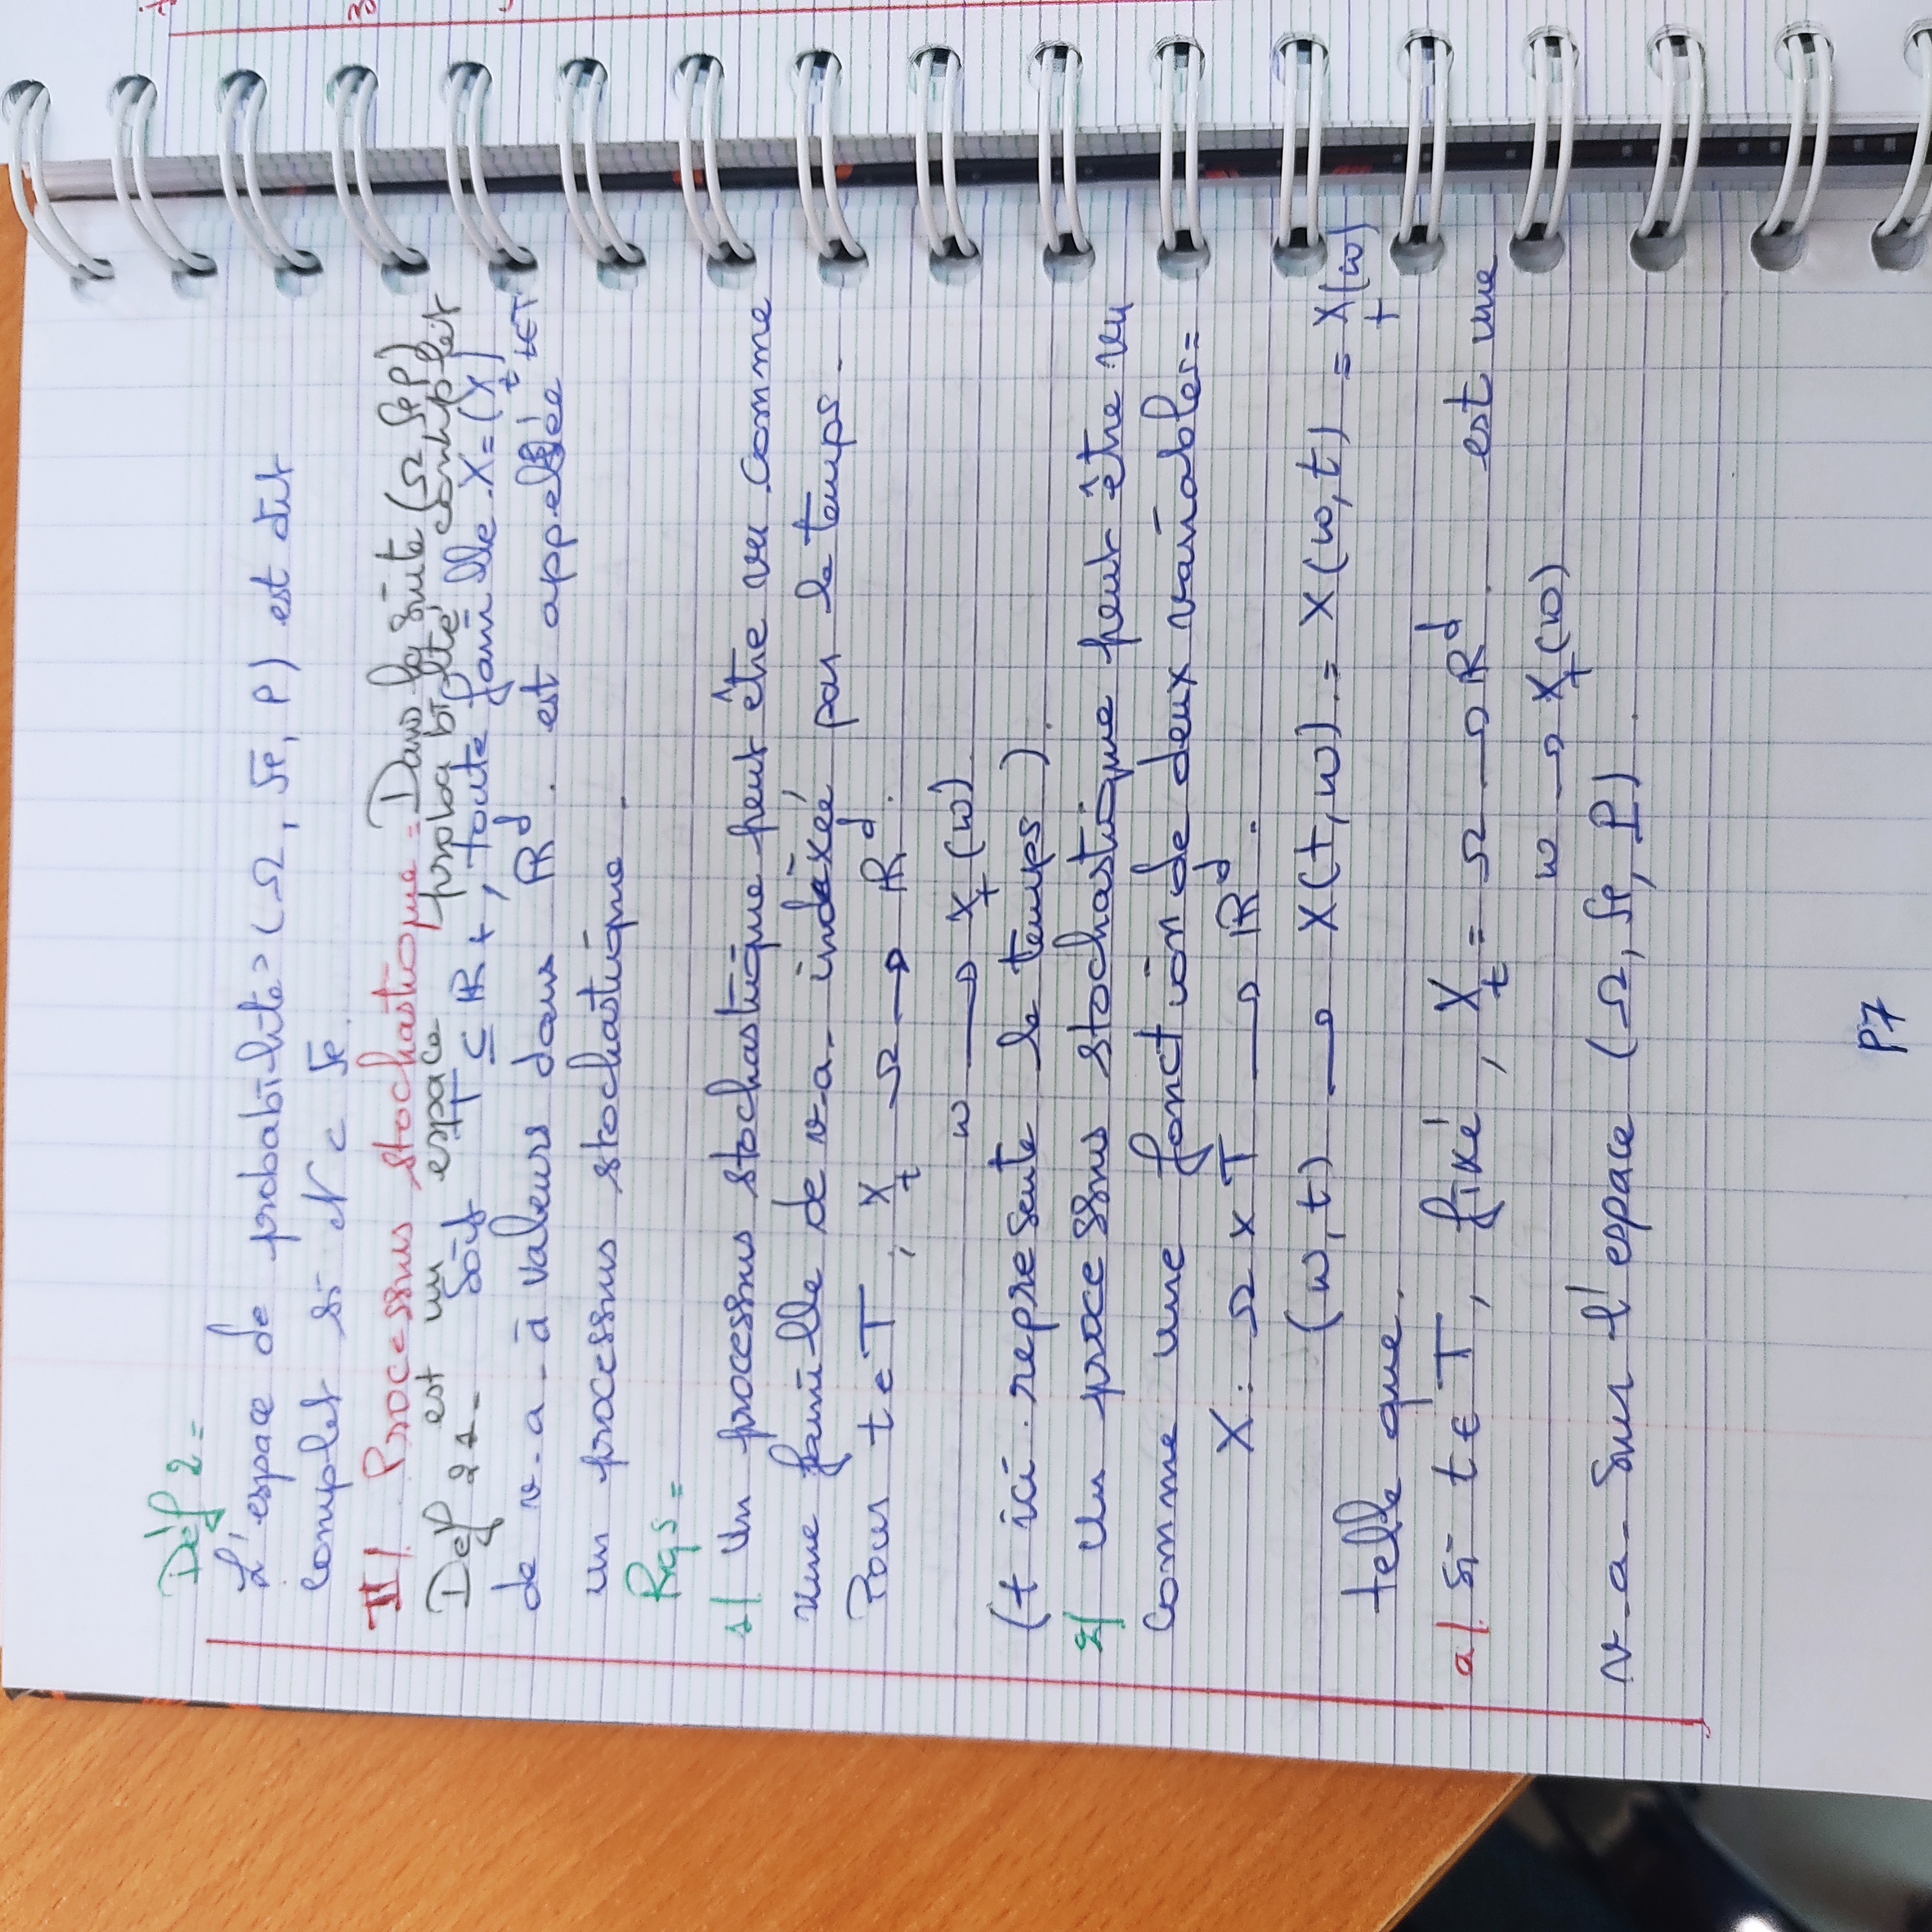 Déf 2 =
L'espace de probabilité (Ω, ℱ, P) est dit
complet si 𝒩 ⊂ ℱ.
II/. Processus stochastique = Dans la suite (Ω, ℱ, P)
est un espace probabilté complet
Def 21- Soit T ⊆ ℝ+, toute famille X = (X_t)_{t∈T}
de v-a- à valeurs dans ℝ^d. est appelée
un processus stochastique.
Rqs =
1/ Un processus stochastique peut être vu comme
une famille de v-a- indexéé par le temps.
Pour t ∈ T, X_t Ω → ℝ^d.
ω → X_t(ω)
(t ici represente le temps).
2/ Un processus stochastique peut être vu
comme une fonction de deux variables =
X : Ω x T → ℝ^d.
(ω, t) → X(t, ω) = X(ω, t) = X_t(ω)
telle que.
a/. si t ∈ T, fixé, X_t = Ω → ℝ^d. est une
ω → X_t(ω)
v-a- sur l'espace (Ω, ℱ, P).
P7